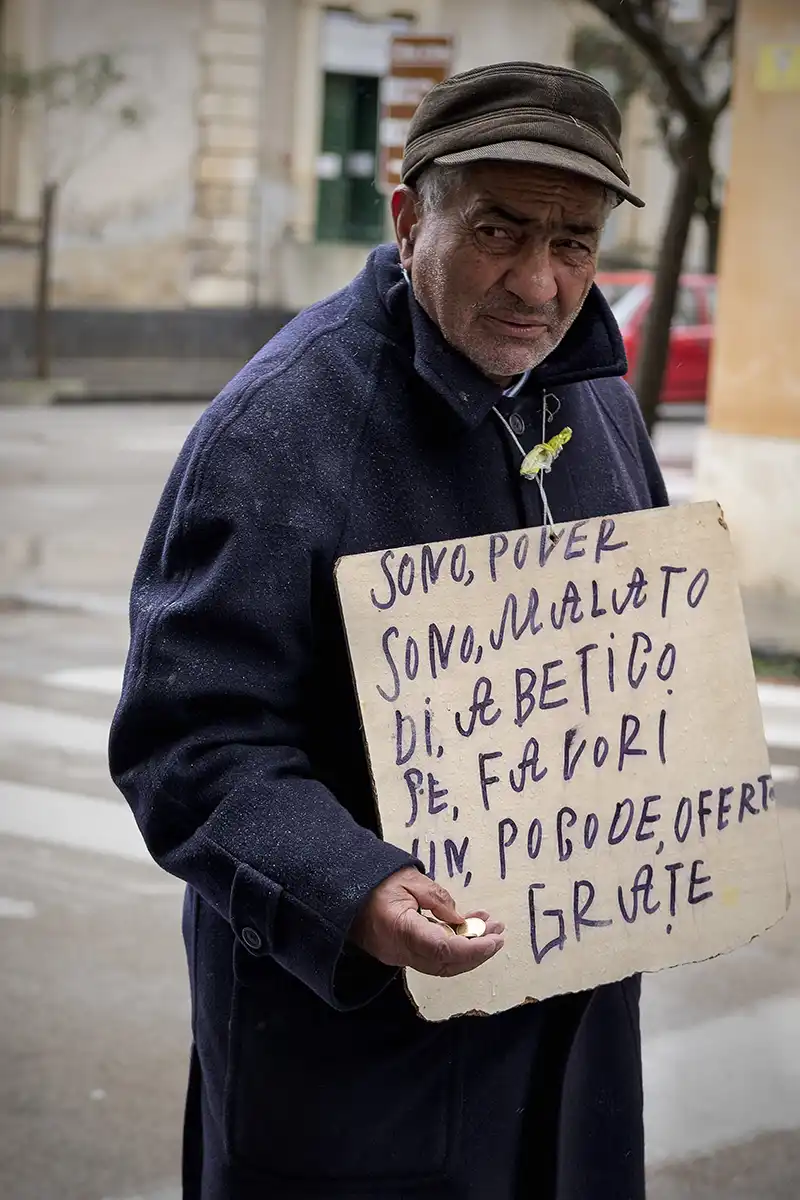 SONO, POVER
SONO, MALATO
DI, ABETICO
SE, FAVORI
UN, POCODE, OFERT
GRAȚE